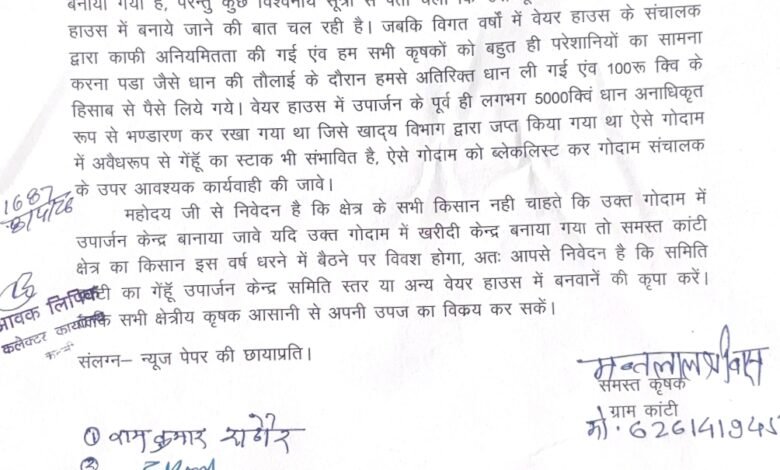 बनाया गया है, परन्तु कुछ विश्वनीय सूत्रों से पता चला कि
हाउस में बनाये जाने की बात चल रही है। जबकि विगत वर्षो में वेयर हाउस के संचालक
द्वारा काफी अनियमितता की गई एंव हम सभी कृषकों को बहुत ही परेशानियों का सामना
करना पडा जैसे धान की तौलाई के दौरान हमसे अतिरिक्त धान ली गई एंव 100रू क्वि के
हिसाब से पैसे लिये गये। वेयर हाउस में उपार्जन के पूर्व ही लगभग 5000क्विं धान अनाधिकृत
रूप से भण्डारण कर रखा गया था जिसे खाद्य विभाग द्वारा जप्त किया गया था ऐसे गोदाम
में अवैधरूप से गेंहॅू का स्टाक भी संभावित है, ऐसे गोदाम को ब्लेकलिस्ट कर गोदाम संचालक
के उपर आवश्यक कार्यवाही की जावे।
1687
महोदय जी से निवेदन है कि क्षेत्र के सभी किसान नही चाहते कि उक्त गोदाम में
उपार्जन केन्द्र बानाया जावे यदि उक्त गोदाम में खरीदी केन्द्र बनाया गया तो समस्त कांटी
क्षेत्र का किसान इस वर्ष धरने में बैठने पर विवश होगा, अतः आपसे निवेदन है कि समिति
का गेंहॅू उपार्जन केन्द्र समिति स्तर या अन्य वेयर हाउस में बनवानें की कृपा करें।
सभी क्षेत्रीय कृषक आसानी से अपनी उपज का विक्रय कर सकें।
आवक लिपिक
कलेक्टर कार्यालय
संलग्न– न्यूज पेपर की छायाप्रति।
समस्त कृषक
ग्राम कांटी
मो. 626141945
① रामकुमार राठौर
②